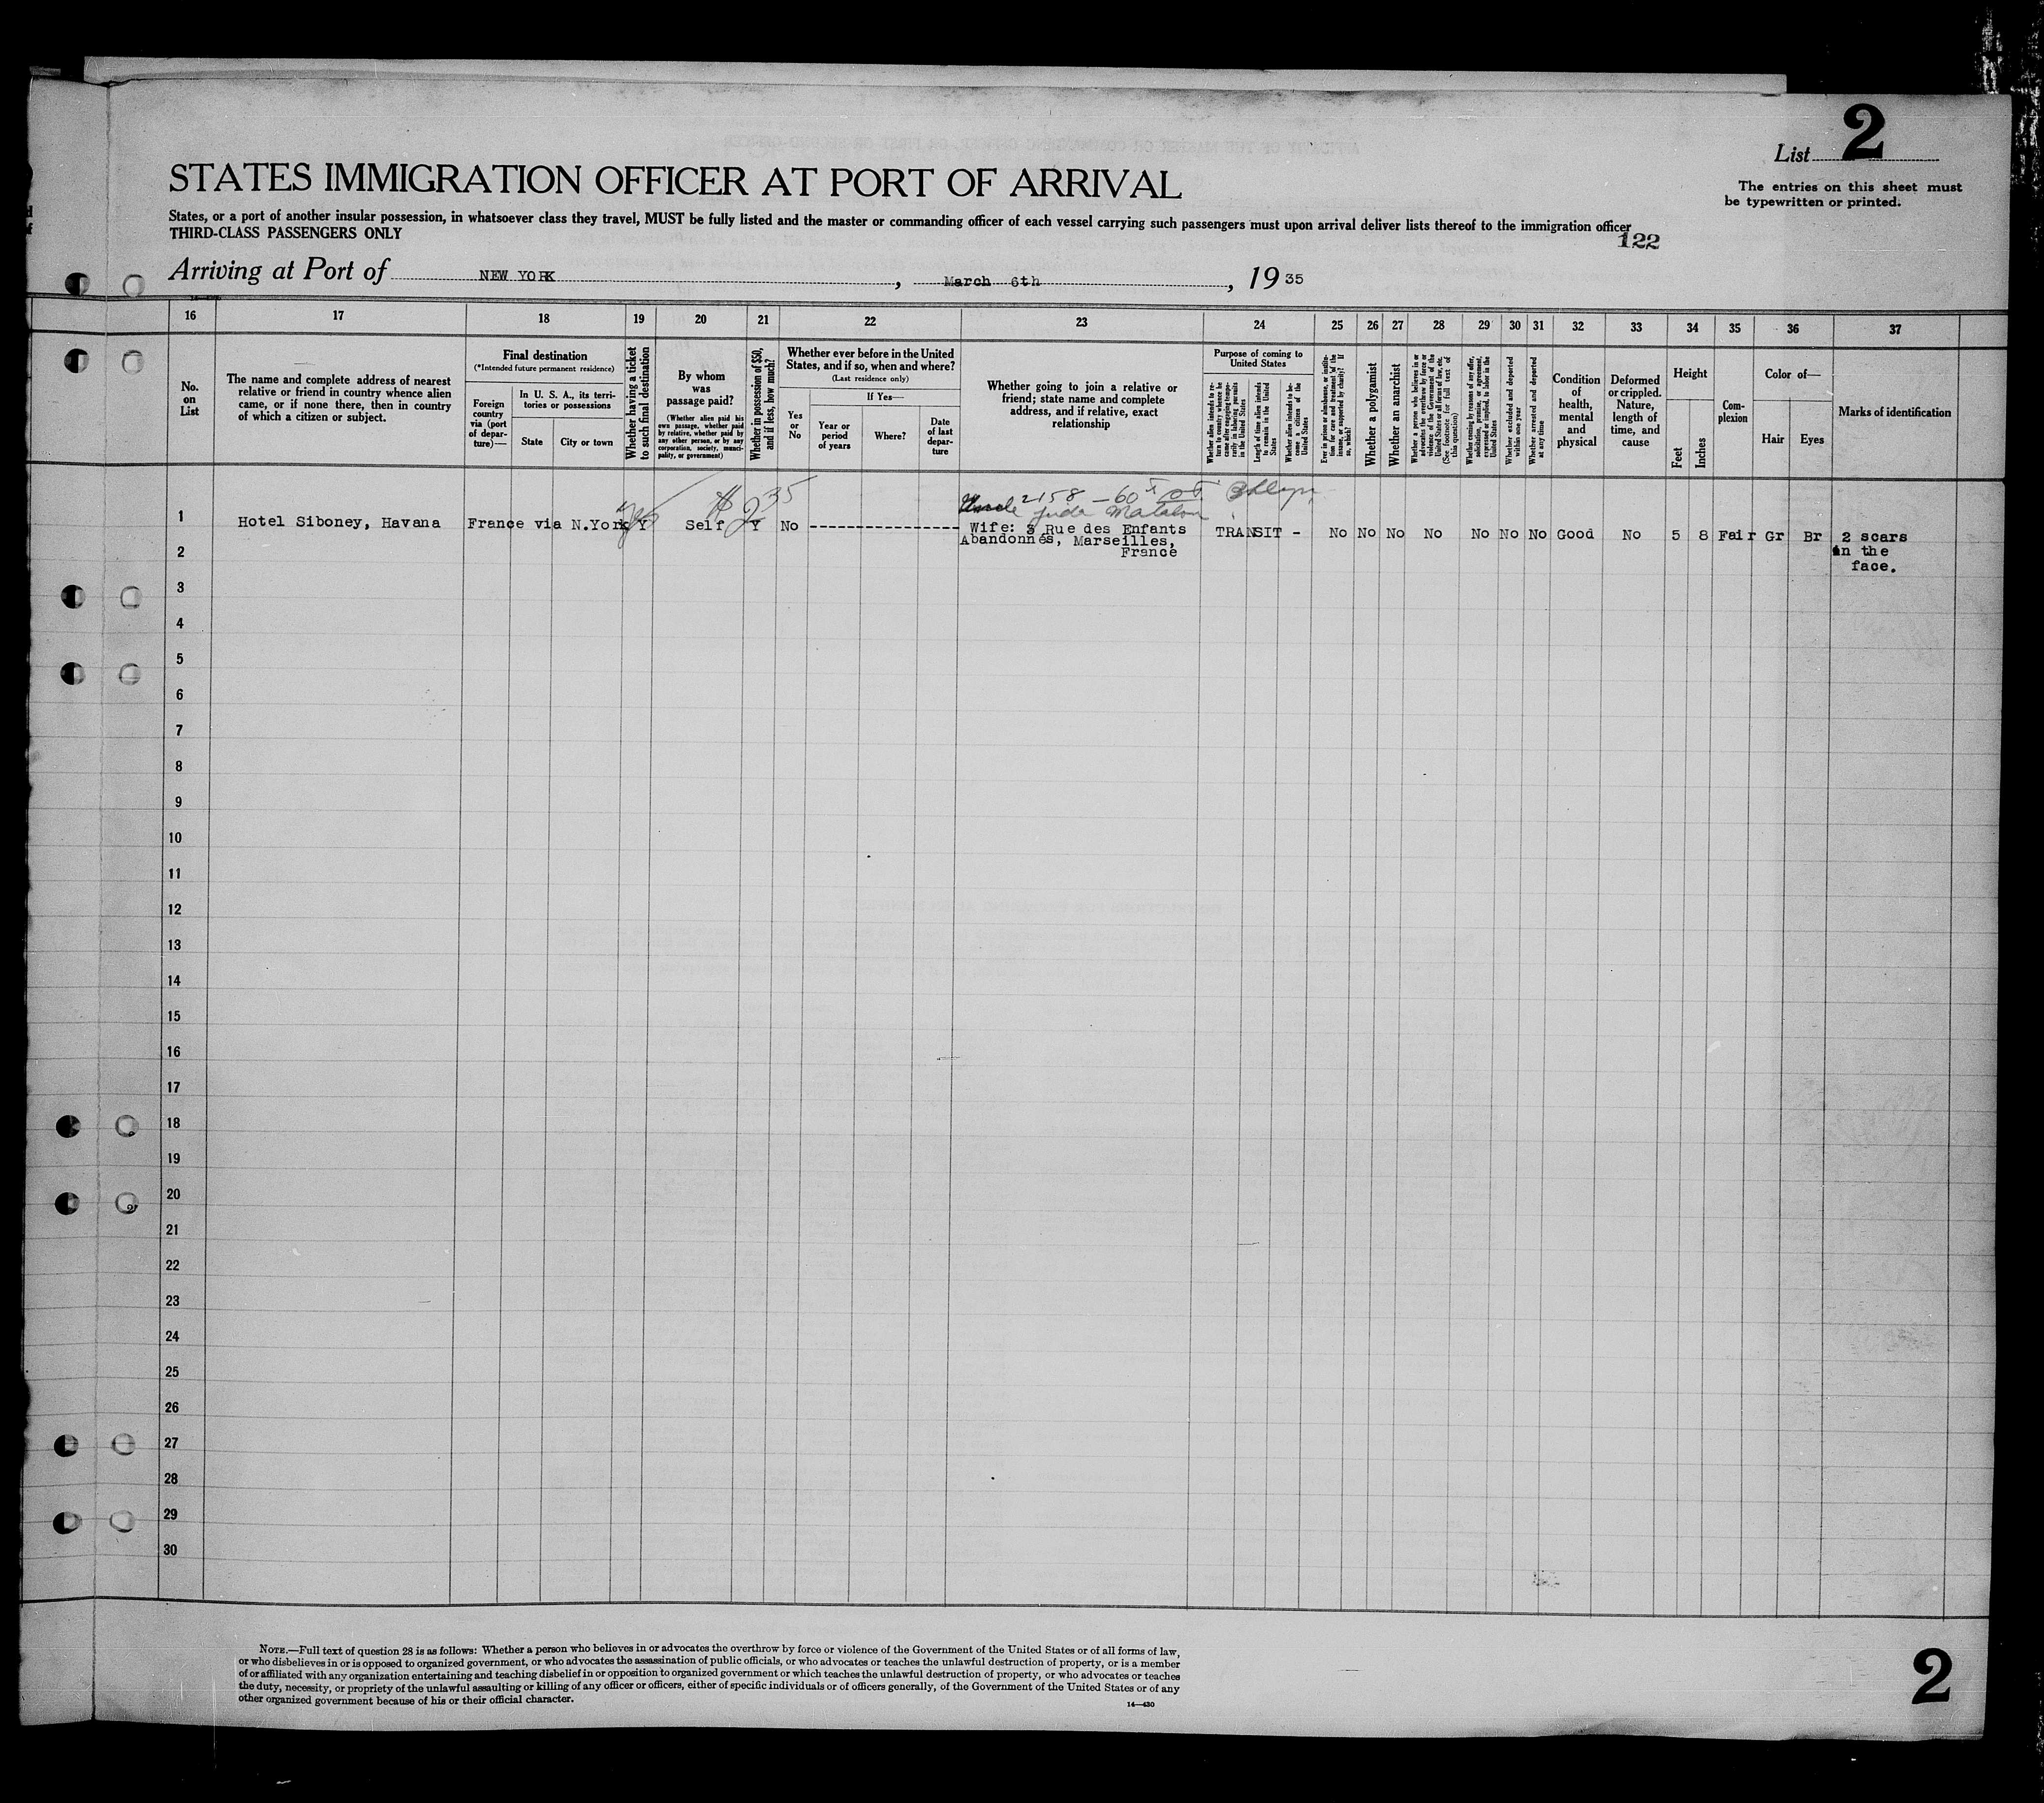 List 2
The entries on this sheet must
be typewritten or printed.
STATES IMMIGRATION OFFICER AT PORT OF ARRIVAL
States, or a port of another insular possession, in whatsoever class they travel, MUST be fully listed and the master or commanding officer of each vessel carrying such passengers must upon arrival deliver lists thereof to the immigration officer
THIRD-CLASS PASSENGERS ONLY
122
Arriving at Port of NEW YORK, March 6th, 1935
16 17 18 19 20 21 22 23 24 25 26 27 28 29 30 31 32 33 34 35 36 37
No.
on
List
The name and complete address of nearest
relative or friend in country whence alien
came, or if none there, then in country
of which a citizen or subject.
Final destination
(*Intended future permanent residence)
Foreign
country
via (port
of depar-
ture)—
In U. S. A., its terri-
tories or possessions
State
City or town
Whether having a ticket
to such final destination
By whom
was
passage paid?
(Whether alien paid his
own passage, whether paid
by relative, whether paid by
any other person, or by any
corporation, society, munici-
pality, or government)
Whether in possession of $50,
and if less, how much?
Whether ever before in the United
States, and if so, when and where?
(Last residence only)
Yes
or
No
If Yes—
Year or
period
of years
Where?
Date
of last
depar-
ture
Whether going to join a relative or
friend; state name and complete
address, and if relative, exact
relationship
Purpose of coming to
United States
Whether alien intends to re-
turn to country whence he
came after engaging tempo-
rarily in laboring pursuits
in the United States
Length of time alien intends
to remain in the United
States
Whether alien intends to be-
come a citizen of the
United States
Ever in prison or almshouse, or institu-
tion for care and treatment of the
insane, or supported by charity? If
so, which?
Whether a polygamist
Whether an anarchist
Whether a person who believes in or
advocates the overthrow by force or
violence of the Government of the
United States or all forms of law, etc.
(See footnote for full text of
this question)
Whether coming by reasons of any offer,
solicitation, promise, or agreement,
expressed or implied, to labor in the
United States
Whether excluded and deported
within one year
Whether arrested and deported
at any time
Condition
of
health,
mental
and
physical
Deformed
or crippled.
Nature,
length of
time, and
cause
Height
Feet
Inches
Com-
plexion
Color of—
Hair
Eyes
Marks of identification
$ 35
2158 — 60 St
Uncle Juda Matalon
1 Hotel Siboney, Havana France via N.York Y Self Y No ----------------- Wife: 3 Rue des Enfants TRANSIT - No No No No No No No Good No 5 8 Fair Gr Br 2 scars
Abandonnés, Marseilles,
in the
France
face.
2
3
4
5
6
7
8
9
10
11
12
13
14
15
16
17
18
19
20
21
22
23
24
25
26
27
28
29
30
NOTE.—Full text of question 28 is as follows: Whether a person who believes in or advocates the overthrow by force or violence of the Government of the United States or of all forms of law,
or who disbelieves in or is opposed to organized government, or who advocates the assassination of public officials, or who advocates or teaches the unlawful destruction of property, or is a member
of or affiliated with any organization entertaining and teaching disbelief in or opposition to organized government or which teaches the unlawful destruction of property, or who advocates or teaches
the duty, necessity, or propriety of the unlawful assaulting or killing of any officer or officers, either of specific individuals or of officers generally, of the Government of the United States or of any
other organized government because of his or their official character.
14—430
2